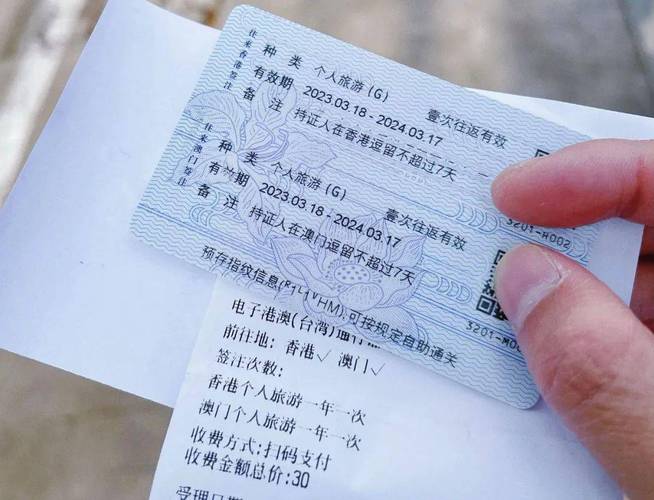 往来香港签注
种 类 个人旅游(G) 壹次往返有效
有效期 2023.03.18 - 2024.03.17
备 注 持证人在香港逗留不超过7天
3201-H002
往来澳门签注
种 类 个人旅游(G) 壹次往返有效
有效期 2023.03.18 - 2024.03.17
备 注 持证人在澳门逗留不超过7天
预存指纹信息 可按规定自助通关
电子港澳(台湾)通行
前往地: 香港√ 澳门√
签注次数:
香港个人旅游一年一次
澳门个人旅游一年一次
收费方式:扫码支付
收费金额总价:30
受理日